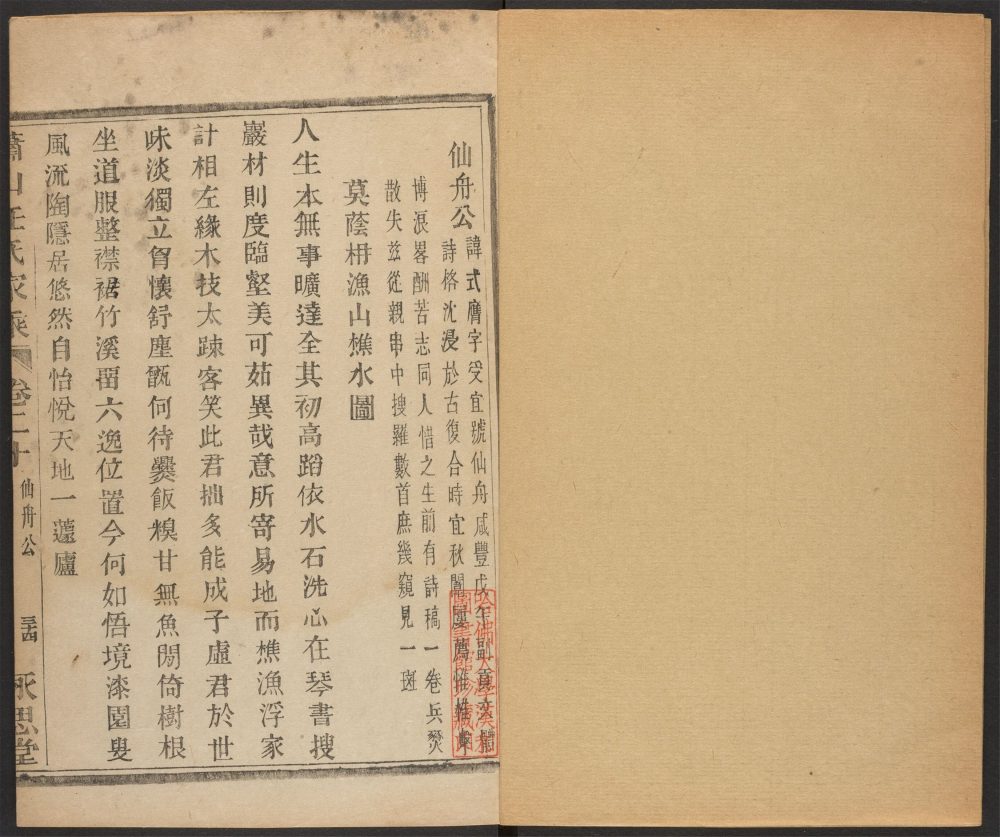 仙舟公
諱式膺字受宜號仙舟咸豐戊午副貢文體
詩格沈浸於古復合時宜秋闈屢薦惟
博浪畧酬苦志同人惜之生前有詩稿一卷兵燹
散失茲從親串中搜羅數首庶幾窺見一斑
莫蔭枏漁山樵水圖
人生本無事曠達全其初高蹈依水石洗心在琴書搜
巖材則度臨壑美可茹異哉意所寄易地而樵漁浮家
計相左緣木技太踈客笑此君拙多能成子虛君於世
味淡獨立胷懷舒塵甑何待爨飯糗甘無魚閒倚樹根
坐道服整襟裾竹溪畱六逸位置今何如悟境漆園叟
風流陶隱居悠然自怡悅天地一蘧廬
蕭山任氏家乘 卷二十 仙舟公 三十四 永思堂
哈佛大學漢和
圖書館珍藏印